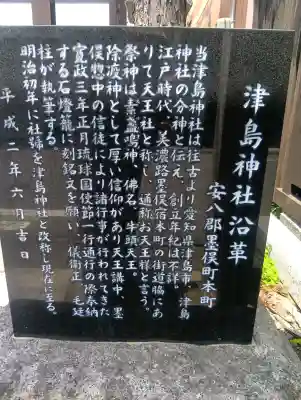 津島神社沿革
安八郡墨俣町本町
当津島神社は往古より愛知県津島市、津島
神社の分神と伝え、創立年紀は不詳。
江戸時代、美濃路墨俣宿本町の街道脇にあ
りて天王社と称し、通称お天王様と言う。
祭神は素盞嗚神、佛名、牛頭天王。
除疫神として厚い信仰があり天王講中、墨
俣惣中の信徒により諸行事が行われてきた
寛政三年正月琉球国使節一行通行の際奉納
する石燈籠に刻銘文を願い、儀衛正、毛廷
柱が執筆する。
明治初年に社號を津島神社と改称し現在に至る。
平成二年六月吉日